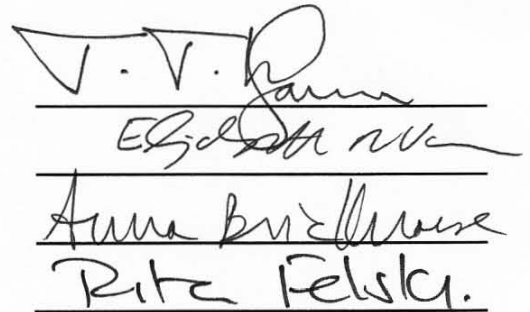 J. D.
Elizabeth
Anna Brickhouse
Rita Felski.